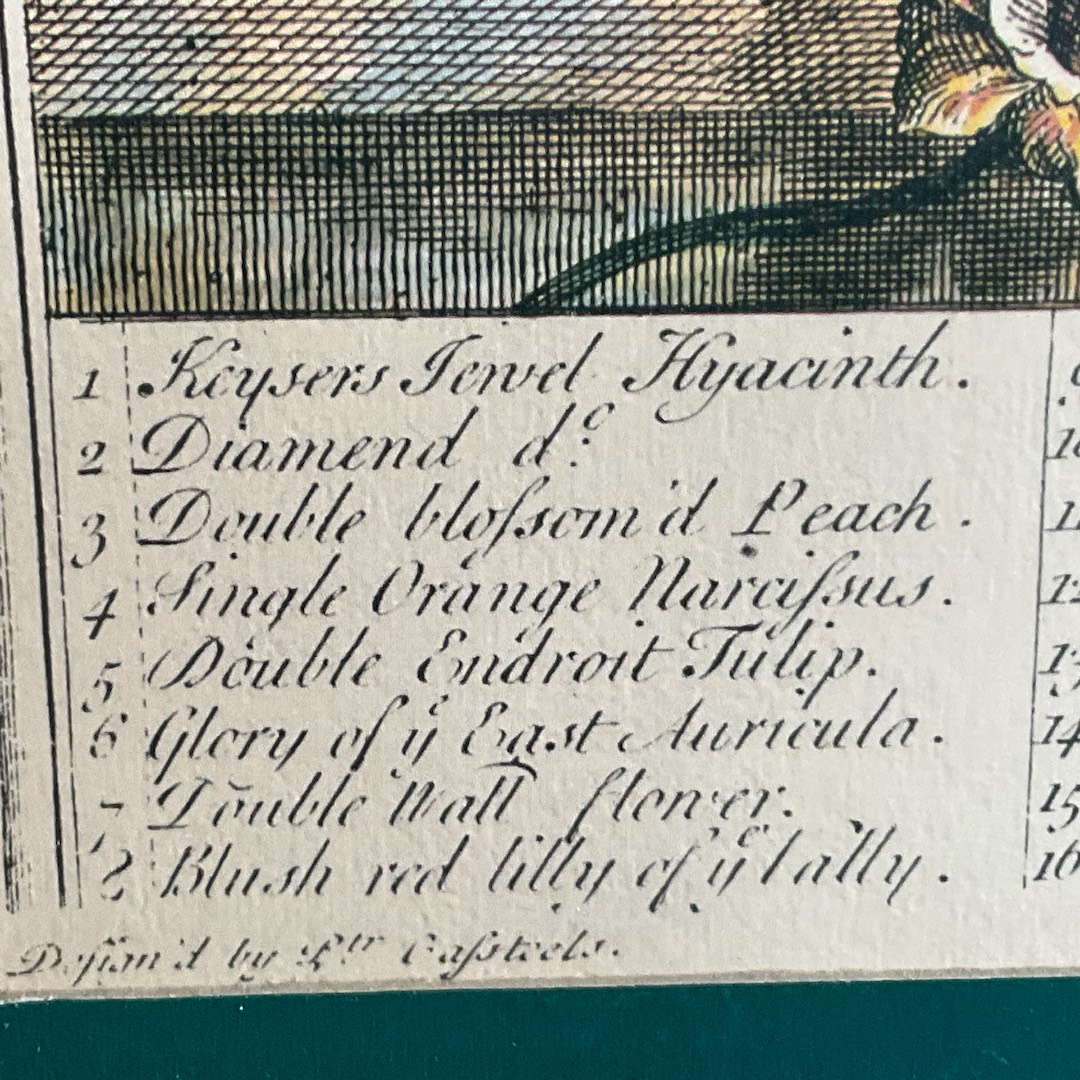 1 Keysers Jewel Hyacinth.
2 Diamend d.º
3 Double bloſsom'd Peach.
4 Single Orange Narciſsus.
5 Double Endroit Tulip.
6 Glory of yᵉ East Auricula.
7 Double Wall flower.
8 Blush red lilly of yᵉ Vally.
11
12
13
14
15
16
Deſign'd by Pᵗʳ Caſsteels.